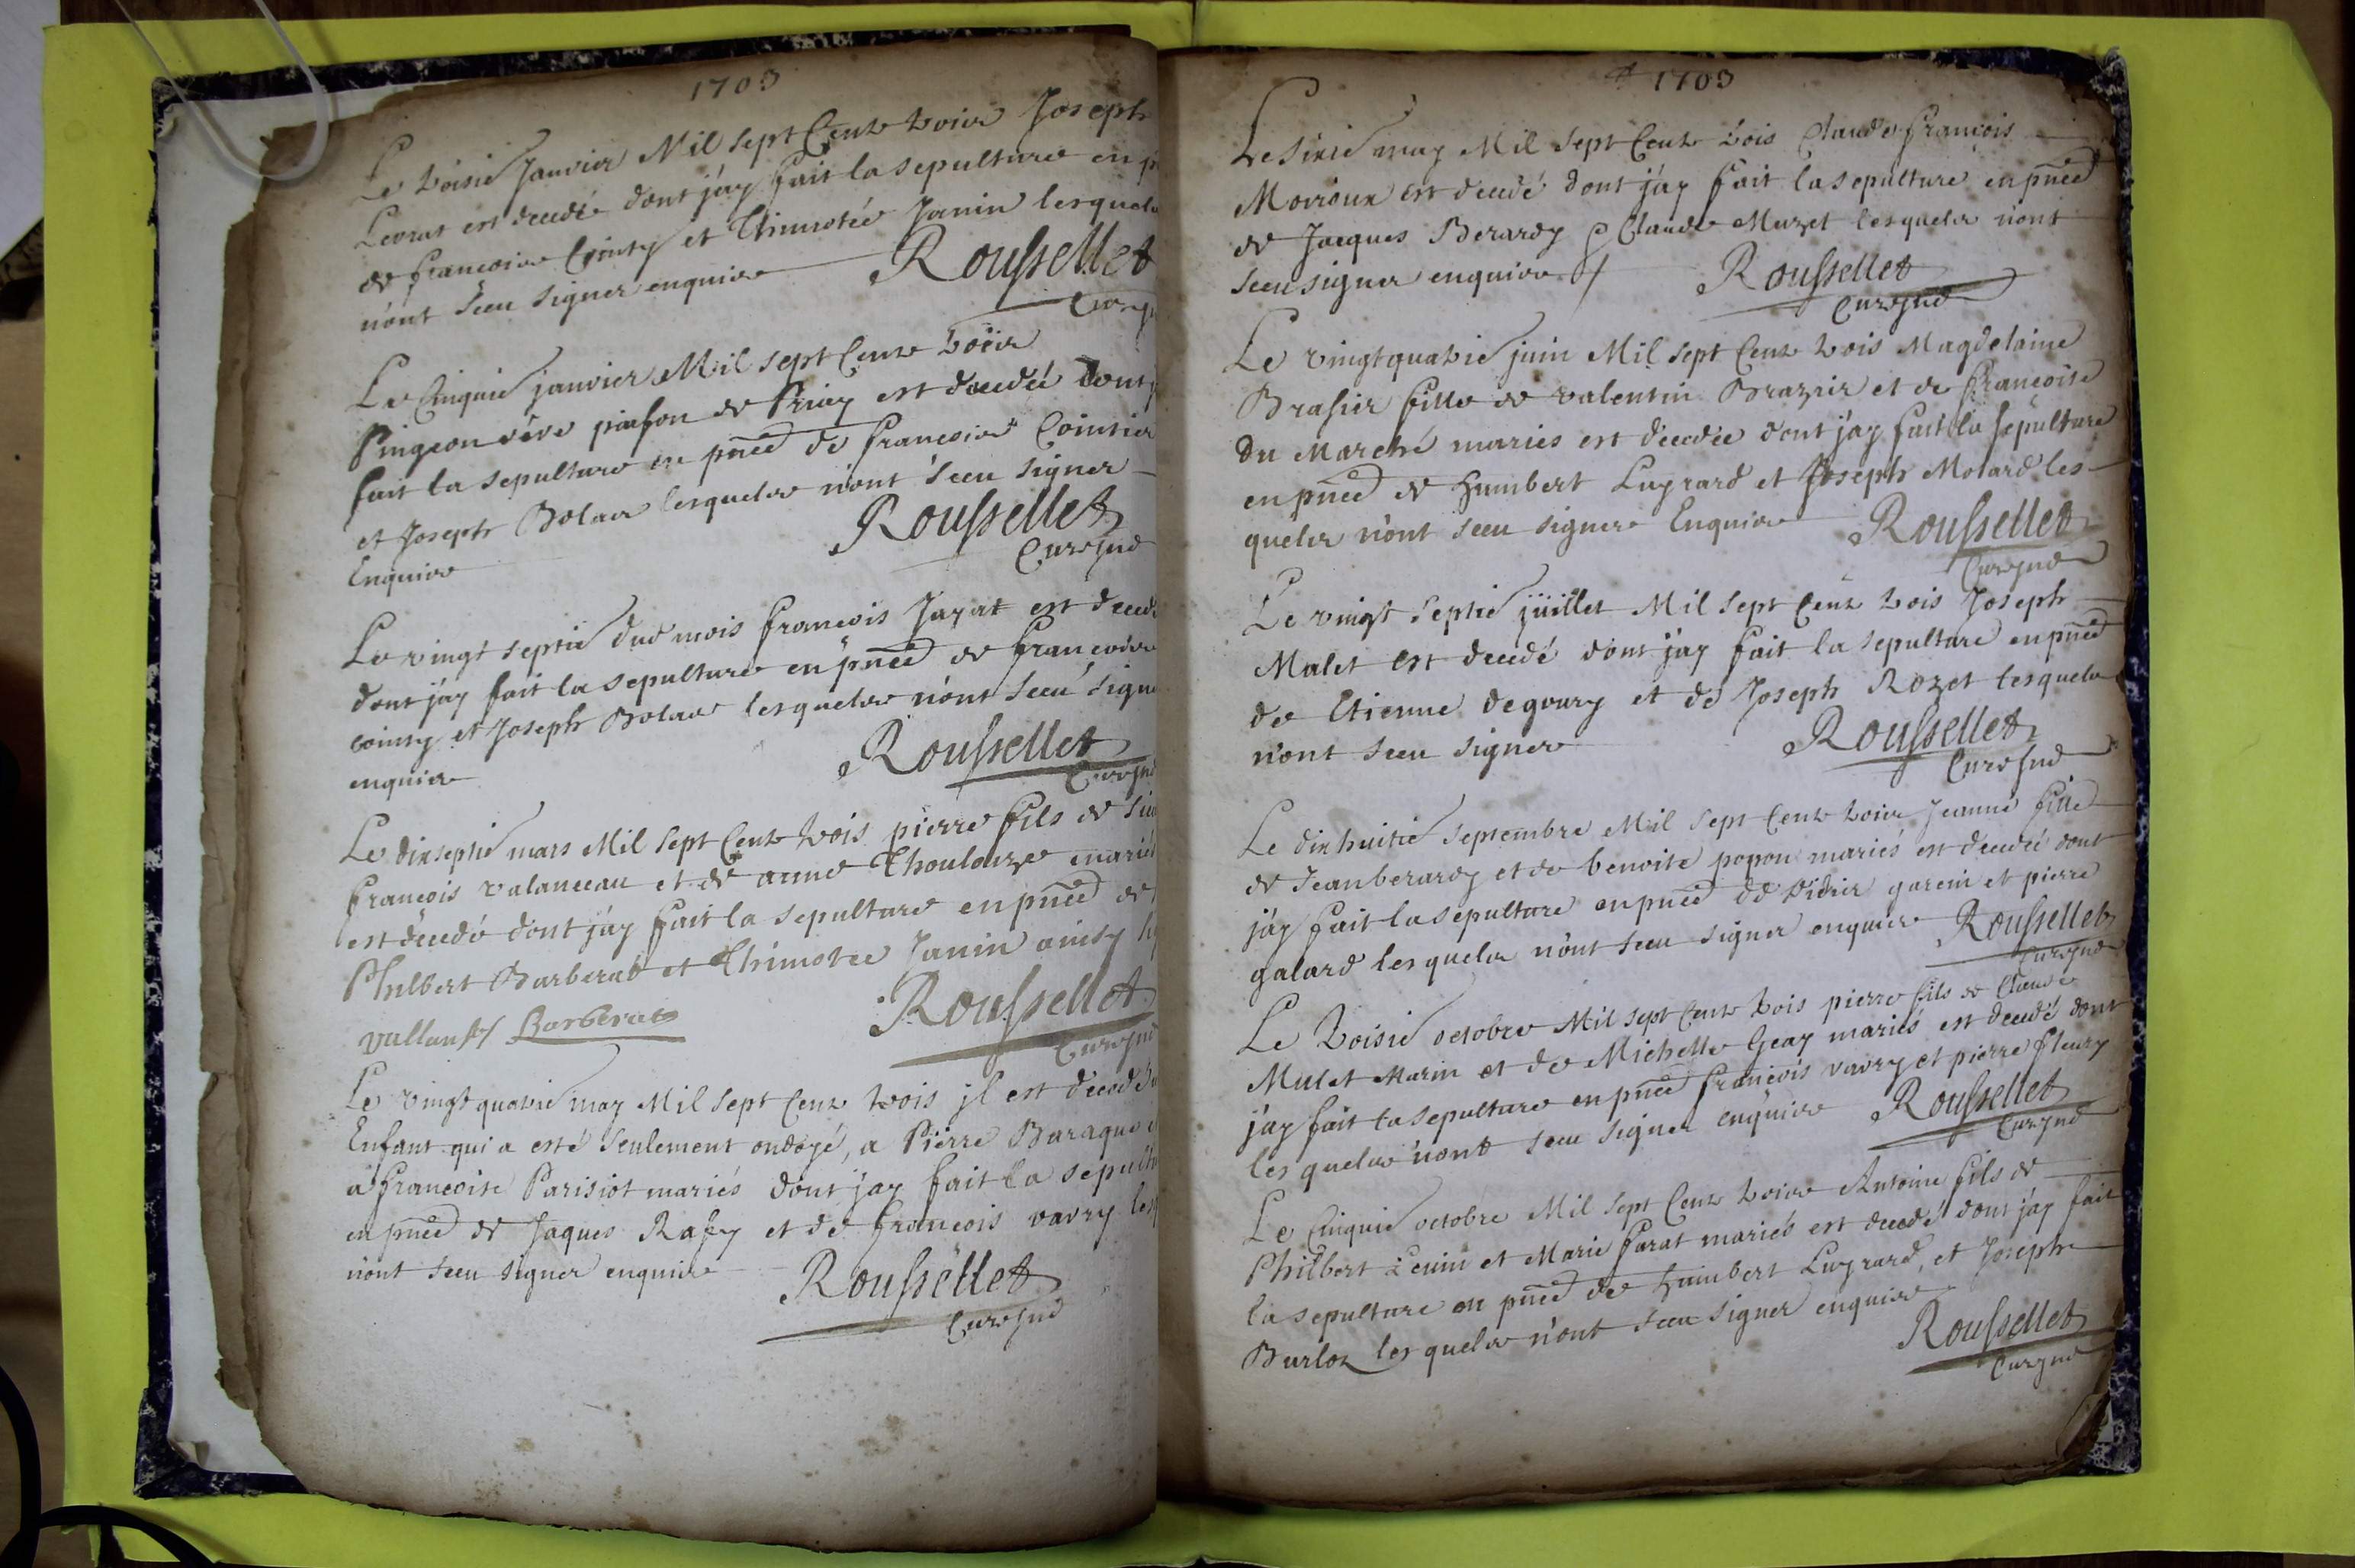 1703
Le troisie Janvier Mil sept Cents trois Joseph
Levrat est decedé dont j'ay fait la sepulture en
de francois Cointy et Thimotée Janin lesquels
n'ont sceu signer enquis Roussellet
Le Cinquie janvier Mil sept Cents trois
Pingeon de Priay est decedé dont
fait la sepulture en pñce de francois Cointier
et Joseph Bolan lesquels n'ont sceu signer
Enquis Roussellet
Curé sud
Le vingt septie dud mois francois Jayat est
dont j'ay fait la sepulture en pñce de francois
cointy et Joseph Bolan lesquels n'ont sceu
enquis Roussellet
Le dixseptie mars Mil sept Cents trois pierre fils de
francois valanceau et de anne Thoulouze
est decedé dont j'ay fait la sepulture en pñce de
Philbert Barberat et Thimotee Janin
Barberat Roussellet
Le vingtquatrie may Mil sept Cents trois il est
Enfant qui a esté seulement ondoyé, a Pierre Baraque
a francoise Parisiot mariés dont j'ay fait la
en pñce de Jaques Rafy et de francois vavry
n'ont sceu signer enquis Roussellet
Curé sud
1703
Le sixie may Mil sept Cents trois Claude francois
Moiroux est decedé dont j'ay fait la sepulture en pñce
de Jacques Berardy & Claude Muzet lesquels n'ont
sceu signer enquis Roussellet
Curé sud
Le vingtquatrie juin Mil sept Cents trois Magdelaine
Brasier fille de valentin Brazier et de francoise
du Marché mariés est decedée dont j'ay fait la sepulture
en pñce de humbert Lugrard et Joseph Molard les
quels n'ont sceu signer Enquis Roussellet
Curé sud
Le vingt septie juillet Mil sept Cents trois Joseph
Malet est decedé dont j'ay fait la sepulture en pñce
de Etienne degoury et de Joseph Rozet lesquels
n'ont sceu signer Roussellet
Curé sud
Le dixhuitie septembre Mil sept Cents trois Jeanne fille
de Jean berardy et de benoite popon mariés est decedée dont
j'ay fait la sepulture en pñce de Didier garein et pierre
galard lesquels n'ont sceu signer enquis Roussellet
Curé sud
Le troisie octobre Mil sept Cents trois pierre fils de Claude
Mulet Marin et de Michelle Geay mariés est decedé dont
j'ay fait la sepulture en pñce francois vavry et pierre fleury
lesquels n'ont sceu signer enquis Roussellet
Curé sud
Le Cinquie octobre Mil sept Cents trois Antoine fils de
Philbert et Marie farat mariés est decedé dont j'ay fait
la sepulture en pñce de humbert Lugrard, et Joseph
Burloz lesquels n'ont sceu signer enquis
Roussellet
Curé sud